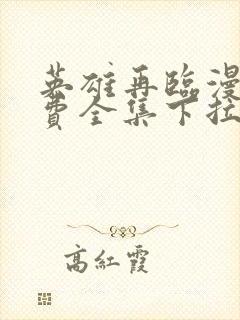 英雄再臨漫
費全集下拉
高紅霞